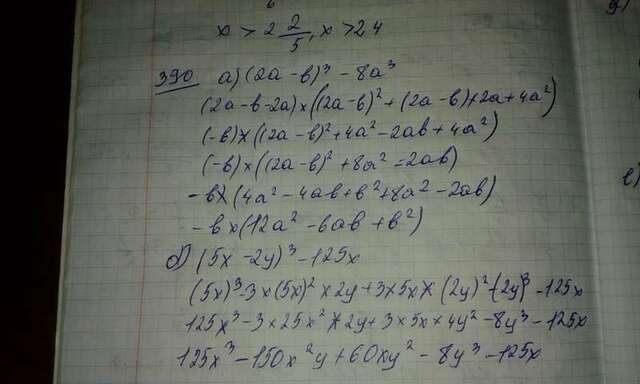 x > 2 2/5, x > 2,4
390 а) (2a - в)³ - 8a³
(2a - в - 2a) × ((2a - в)² + (2a - в) × 2a + 4a²)
(-в) × ((2a - в)² + 4a² - 2aв + 4a²)
(-в) × ((2a - в)² + 8a² - 2aв)
-в × (4a² - 4aв + в² + 8a² - 2aв)
-в × (12a² - 6aв + в²)
б) (5x - 2y)³ - 125x
(5x)³ - 3 × (5x)² × 2y + 3 × 5x × (2y)² - (2y)³ - 125x
125x³ - 3 × 25x² × 2y + 3 × 5x × 4y² - 8y³ - 125x
125x³ - 150x²y + 60xy² - 8y³ - 125x